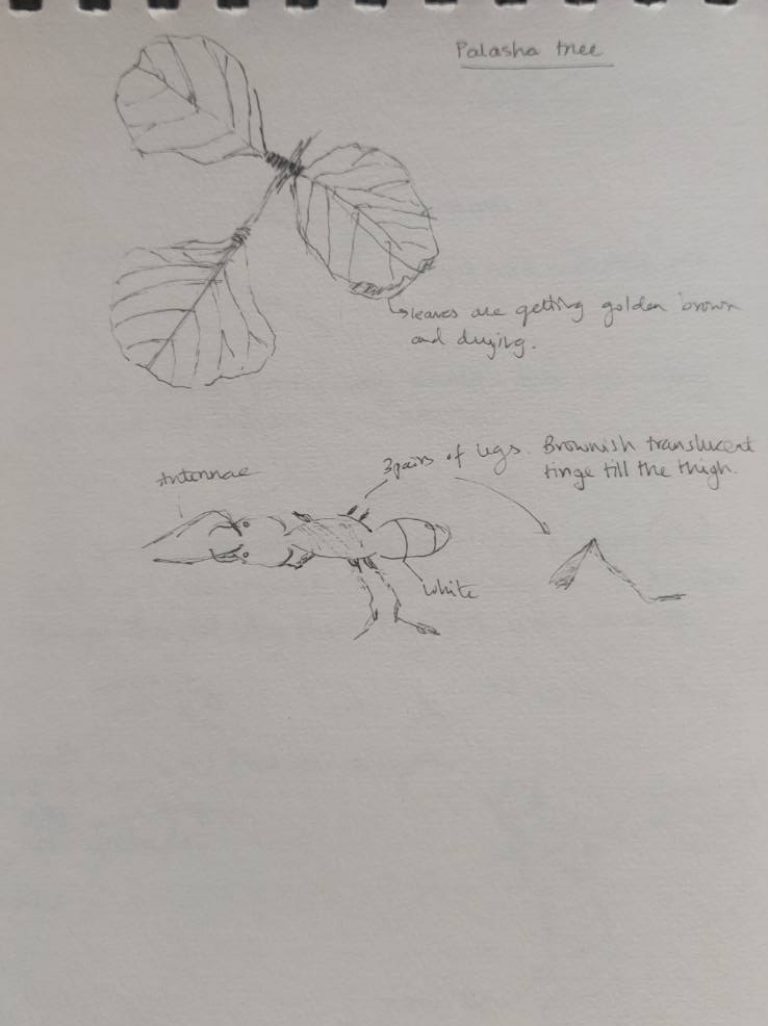 Palasha tree
leaves are getting golden brown
and drying.
Antennae
3 pairs of legs. Brownish translucent
tinge till the thigh.
white